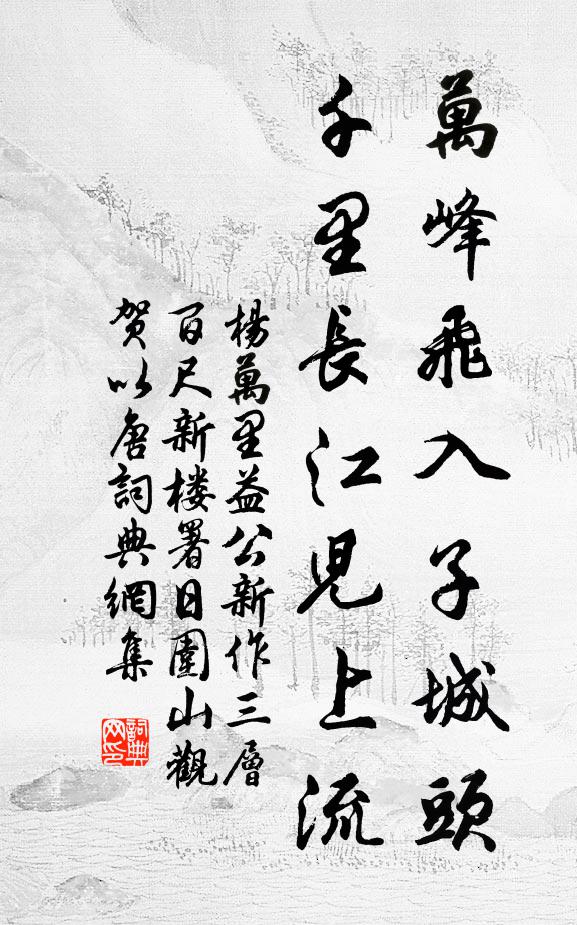 萬峰飛入子城頭
千里長江見上流
楊萬里益公新作三層
百尺新楼署日圍山觀
賀以唐詞典網集
詞典網印